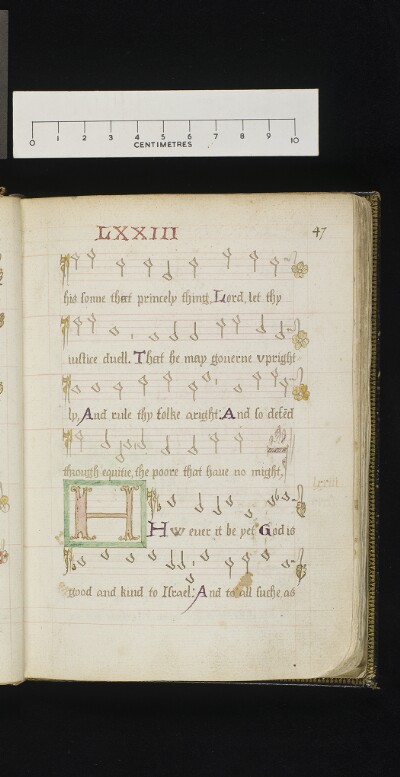 0 1 2 3 4 5 6 7 8 9 10
CENTIMETRES
LXXIII
47
his sonne that princely thing, Lord, let thy
iustice duell. That he may gouerne vpright
ly, And rule thy folke aright: And so defēd
through equitie, the poore that haue no might,
Lxxiii
H Hw euer it be yet God is
good and kind to Israel: And to all suche as